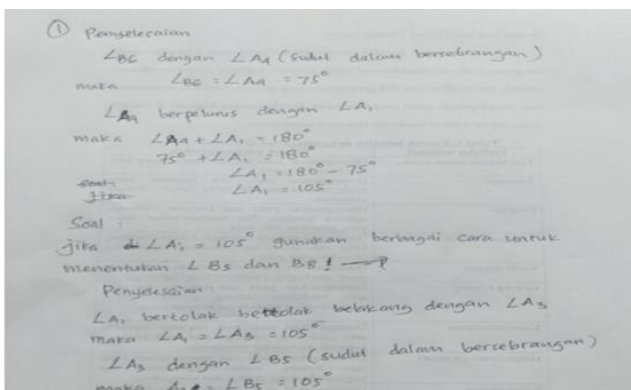 ① Penyelecaian
∠BC dengan ∠A4 (sudut dalam bersebrangan)
maka ∠BC = ∠A4 = 75°
∠A4 berpelurus dengan ∠A1
maka ∠A4 + ∠A1 = 180°
75° + ∠A1 = 180°
∠A1 = 180° - 75°
∠A1 = 105°
Soal :
jika ∠A1 = 105° gunakan berbagai cara untuk
menentukan ∠B5 dan B8!
Penyelesaian :
∠A1 bertolak belakang dengan ∠A3
maka ∠A1 = ∠A3 = 105°
∠A3 dengan ∠B5 (sudut dalam bersebrangan)
maka ∠B5 = 105°